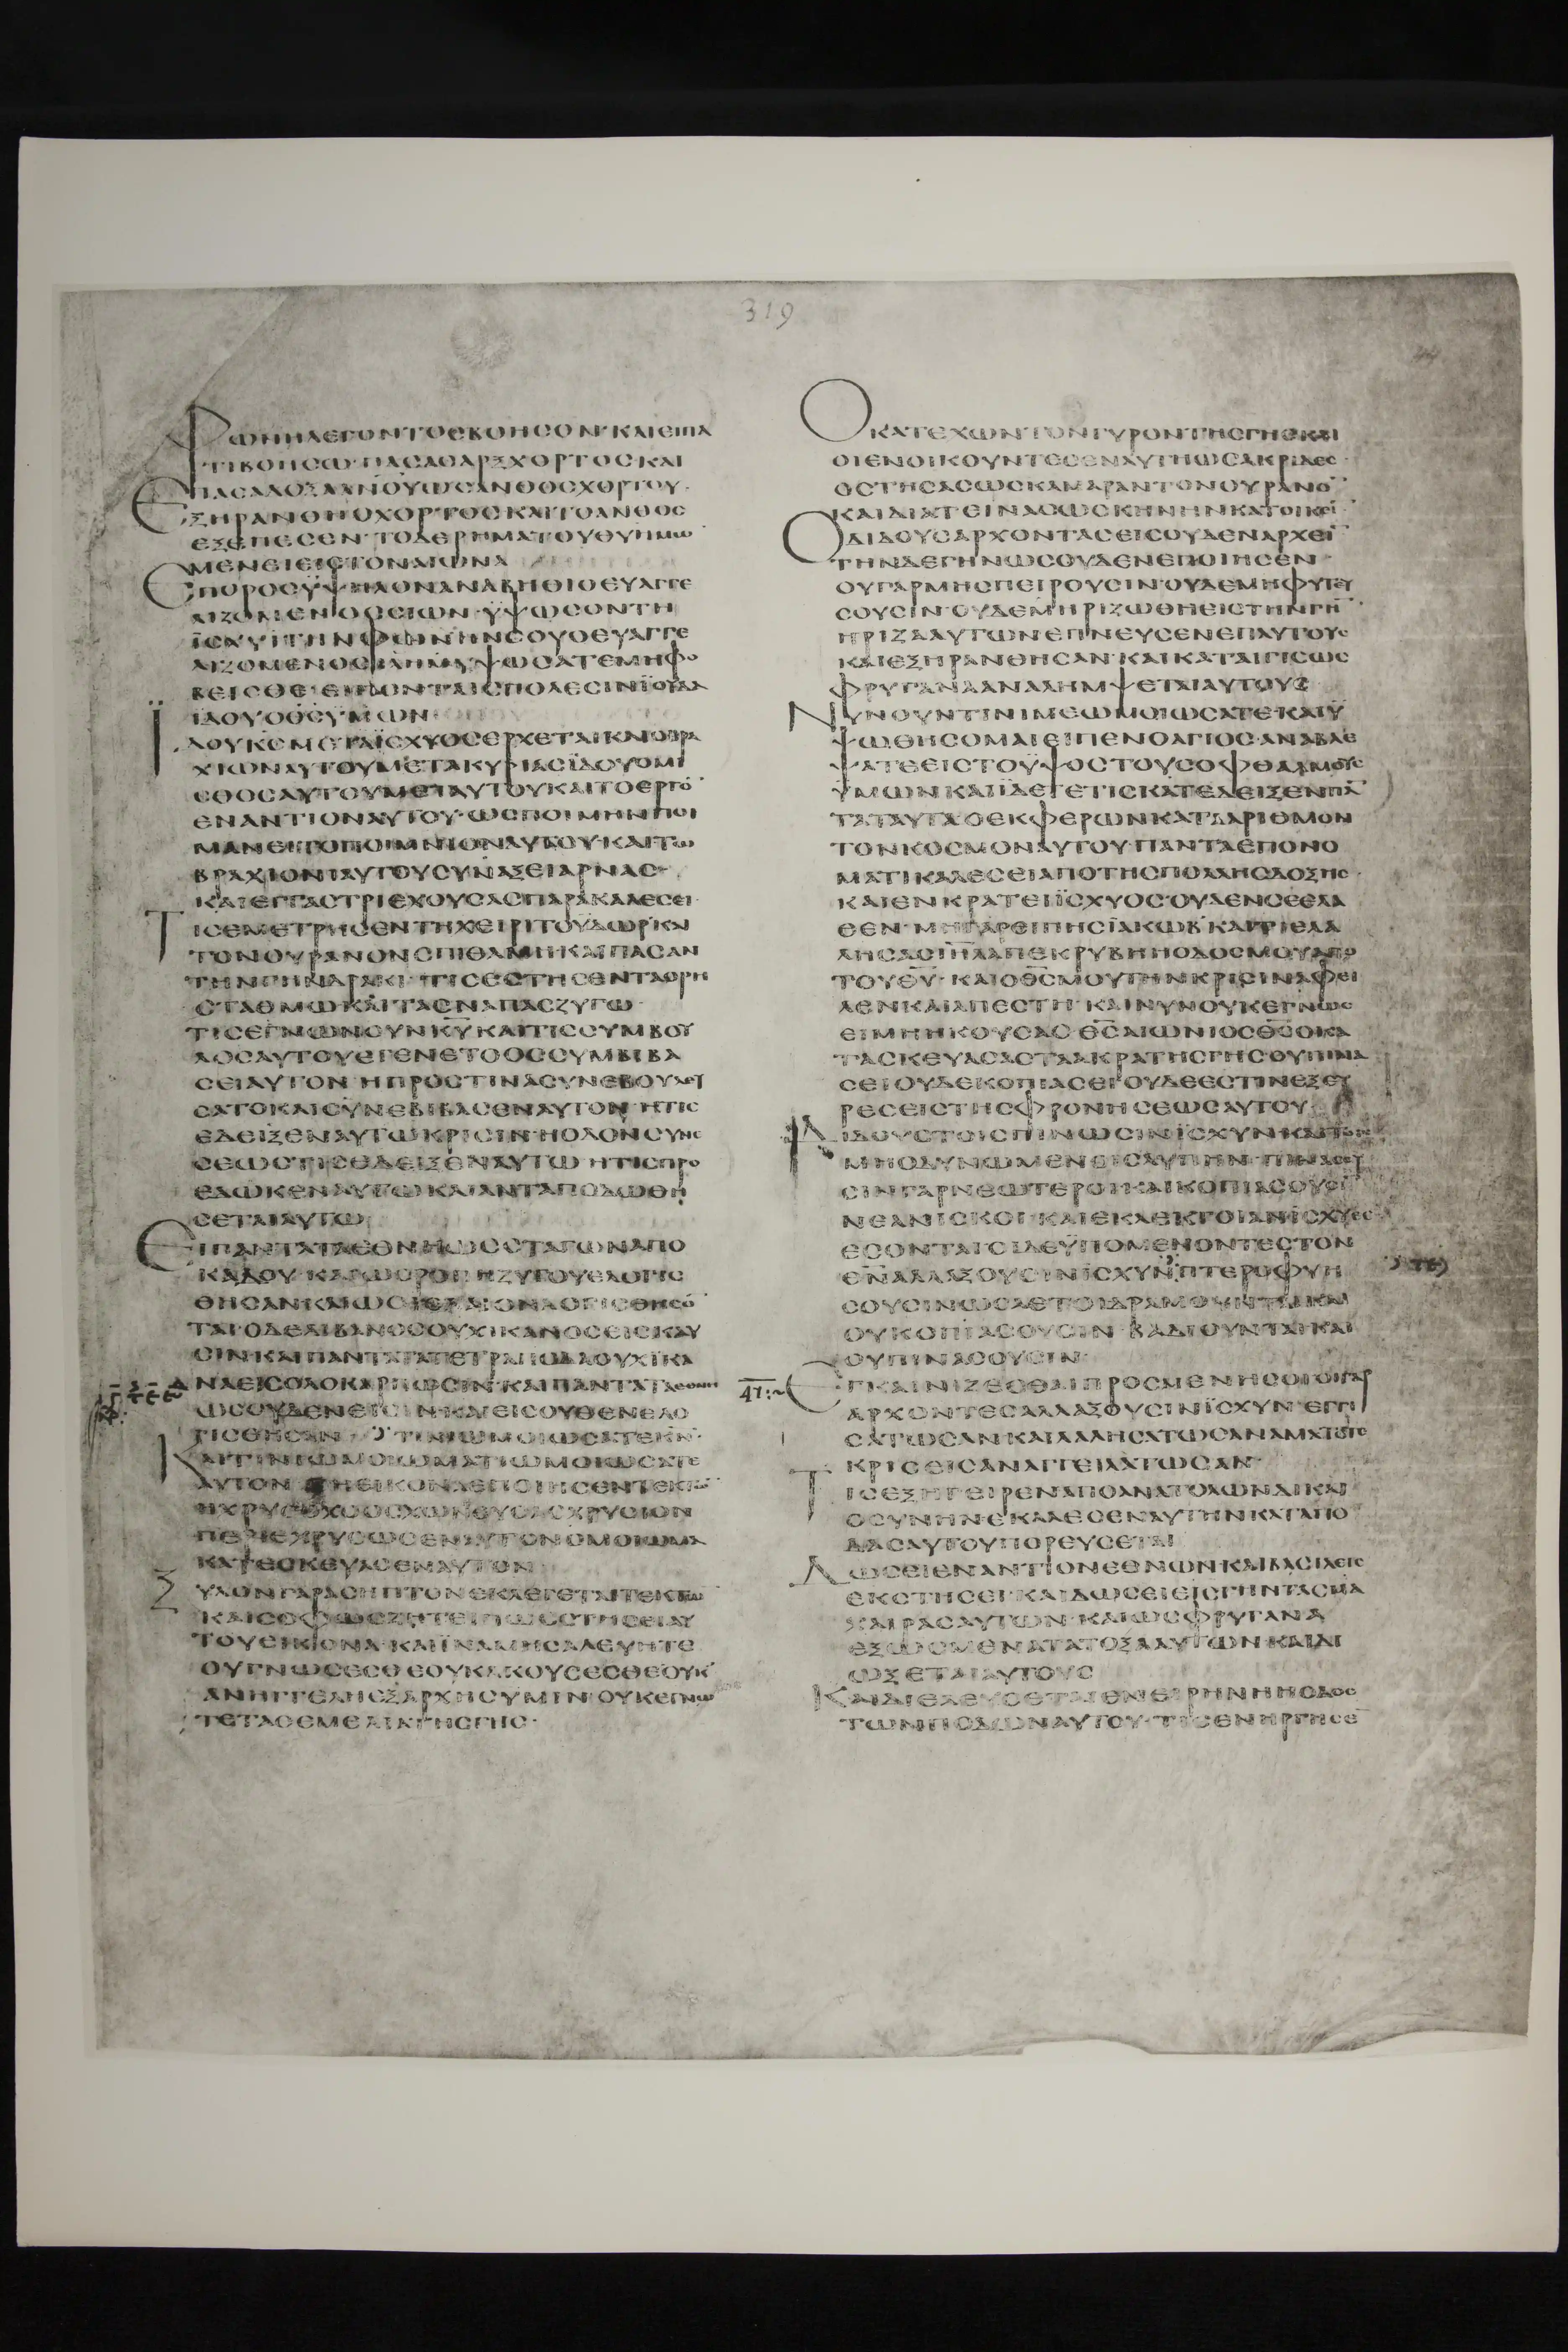 319
ΦΩΝΗΛΕΓΟΝΤΟCΒΟΗCΟΝ·ΚΑΙΕΙΠΑ
ΤΙΒΟΗCΩ·ΠΑCΑCΑΡΞΧΟΡΤΟCΚΑΙ
ΠΑCΑΔΟΞΑΑΝΟΥΩCΑΝΘΟCΧΟΡΤΟΥ·
ΕΞΗΡΑΝΘΗΟΧΟΡΤΟCΚΑΙΤΟΑΝΘΟC
ΕΞΕΠΕCΕΝ·ΤΟΔΕΡΗΜΑΤΟΥΘΥΗΜΩ
ΜΕΝΕΙΕΙCΤΟΝΑΙΩΝΑ
ΕΠΟΡΟCΫΨΗΛΟΝΑΝΑΒΗΘΙΟΕΥΑΓΓΕ
ΛΙΖΟΜΕΝΟCCΙΩΝ·ΫΨΩCΟΝΤΗ
ΪCΧΥΙΤΗΝΦΩΝΗΝCΟΥΟΕΥΑΓΓΕ
ΛΙΖΟΜΕΝΟC ΫΨΩCΑΤΕΜΗΦΟ
ΒΕΙCΘΕ·ΕΙΠΟΝΤΑΙCΠΟΛΕCΙΝΪΟΥΔΑ
ΙΔΟΥΟΘCΫΜΩΝ
ΪΔΟΥΚC ΪCΧΥΟCΕΡΧΕΤΑΙΚΑΙΟΒΡΑ
ΧΙΩΝΑΥΤΟΥΜΕΤΑΚΥΡΙΑCΪΔΟΥΟΜΙ
CΘΟCΑΥΤΟΥΜΕΤΑΥΤΟΥΚΑΙΤΟΕΡΓΟ
ΕΝΑΝΤΙΟΝΑΥΤΟΥ·ΩCΠΟΙΜΗΝΠΟΙ
ΜΑΝΕΙΤΟΠΟΙΜΝΙΟΝΑΥΤΟΥΚΑΙΤΩ
ΒΡΑΧΙΟΝΙΑΥΤΟΥCΥΝΑΞΕΙΑΡΝΑC·
ΚΑΙΕΝΓΑCΤΡΙΕΧΟΥCΑCΠΑΡΑΚΑΛΕCΕΙ·
ΤΙCΕΜΕΤΡΗCΕΝΤΗΧΕΙΡΙΤΟΫΔΩΡΚΑΙ
ΤΟΝΟΥΡΑΝΟΝCΠΙΘΑΜΗΚΑΙΠΑCΑΝ
ΤΗΝΓΗΝΔΡΑΚΙ·ΤΙCΕCΤΗCΕΝΤΑΟΡΗ
CΤΑΘΜΩΚΑΙΤΑCΝΑΠΑCΖΥΓΩ·
ΤΙCΕΓΝΩΝΟΥΝΚΥΚΑΙΤΙCCΥΜΒΟΥ
ΛΟCΑΥΤΟΥΕΓΕΝΕΤΟΟCCΥΜΒΙΒΑ
CΕΙΑΥΤΟΝ·ΗΠΡΟCΤΙΝΑCΥΝΕΒΟΥΛΕΥ
CΑΤΟΚΑΙCΥΝΕΒΙΒΑCΕΝΑΥΤΟΝ·ΗΤΙC
ΕΔΕΙΞΕΝΑΥΤΩΚΡΙCΙΝ·ΗΟΔΟΝCΥΝΕ
CΕΩCΤΙCΕΔΕΙΞΕΝΑΥΤΩ·ΗΤΙCΠΡΟ
ΕΔΩΚΕΝΑΥΤΩΚΑΙΑΝΤΑΠΟΔΩΘΗ
CΕΤΑΙΑΥΤΩ
ΕΙΠΑΝΤΑΤΑΕΘΝΗΩCCΤΑΓΩΝΑΠΟ
ΚΑΔΟΥ·ΚΑΙΩCΡΟΠΗΖΥΓΟΥΕΛΟΓΙC
ΘΗCΑΝΚΑΙΩCCΙΕΛΟΝΛΟΓΙCΘΗCΟ
ΤΑΙ·ΟΔΕΛΙΒΑΝΟCΟΥΧΙΚΑΝΟCΕΙCΚΑΥ
CΙΝΚΑΙΠΑΝΤΑΤΑΤΕΤΡΑΠΟΔΑΟΥΧΙΚΑ
ΝΑΕΙCΟΛΟΚΑΡΠΩCΙΝ·ΚΑΙΠΑΝΤΑΤΑΕΘΝΗ
ΩCΟΥΔΕΝΕΙCΙΝΚΑΙΕΙCΟΥΘΕΝΕΛΟ
ΓΙCΘΗCΑΝ ΤΙΝΙΩΜΟΙΩCΑΤΕΚΝ
ΚΑΙΤΙΝΙΩΜΟΙΩΜΑΤΙΩΜΟΙΩCΑΤΕ
ΑΥΤΟΝ·ΜΗΕΙΚΟΝΑΕΠΟΙΗCΕΝΤΕΚΤΩ
ΗΧΡΥCΟΧΟΟCΧΩΝΕΥCΑCΧΡΥCΙΟΝ
ΠΕΡΙΕΧΡΥCΩCΕΝΑΥΤΟΝΟΜΟΙΩΜΑ
ΚΑΤΕCΚΕΥΑCΕΝΑΥΤΟΝ
ΞΥΛΟΝΓΑΡΑCΗΠΤΟΝΕΚΛΕΓΕΤΑΙΤΕΚΤΩ
ΚΑΙCΟΦΩCΖΗΤΕΙΠΩCCΤΗCΕΙΑΥ
ΤΟΥΕΙΚΟΝΑ·ΚΑΙΪΝΑΜΗCΑΛΕΥΗΤΕ
ΟΥΓΝΩCΕCΘΕΟΥΚΑΚΟΥCΕCΘΕΟΥΚ
ΑΝΗΓΓΕΛΗΕΞΑΡΧΗCΥΜΙΝ·ΟΥΚΕΓΝΩ
ΤΕΤΑΘΕΜΕΛΙΑΤΗCΓΗC·
ΟΚΑΤΕΧΩΝΤΟΝΓΥΡΟΝΤΗCΓΗCΚΑΙ
ΟΙΕΝΟΙΚΟΥΝΤΕCΕΝΑΥΤΗΩCΑΚΡΙΔΕC·
ΟCΤΗCΑCΩCΚΑΜΑΡΑΝΤΟΝΟΥΡΑΝΟ
ΚΑΙΔΙΑΤΕΙΝΑCΩCΚΗΝΗΝΚΑΤΟΙΚΕΙ
ΟΔΙΔΟΥCΑΡΧΟΝΤΑCΕΙCΟΥΔΕΝΑΡΧΕΙ
ΤΗΝΔΕΓΗΝΩCΟΥΔΕΝΕΠΟΙΗCΕΝ·
ΟΥΓΑΡΜΗCΠΕΙΡΟΥCΙΝ·ΟΥΔΕΜΗΦΥΤΕΥ
CΟΥCΙΝ·ΟΥΔΕΜΗΡΙΖΩΘΗΕΙCΤΗΝΓΗ
ΗΡΙΖΑΑΥΤΩΝΕΠΝΕΥCΕΝΕΠΑΥΤΟΥC
ΚΑΙΕΞΗΡΑΝΘΗCΑΝ·ΚΑΙΚΑΤΑΙΓΙCΩC
ΦΡΥΓΑΝΑΑΝΑΛΗΜΨΕΤΑΙΑΥΤΟΥC
ΝΥΝΟΥΝΤΙΝΙΜΕΩΜΟΙΩCΑΤΕ·ΚΑΙΫ
ΨΩΘΗCΟΜΑΙΕΙΠΕΝΟΑΓΙΟC·ΑΝΑΒΛΕ
ΨΑΤΕΕΙCΤΟΫΨΟCΤΟΥCΟΦΘΑΛΜΟΥC
ΫΜΩΝΚΑΙΪΔΕΤΕΤΙCΚΑΤΕΔΕΙΞΕΝΠΑ
ΤΑΤΑΥΤΑΟΕΚΦΕΡΩΝΚΑΤΑΑΡΙΘΜΟΝ
ΤΟΝΚΟCΜΟΝΑΥΤΟΥ·ΠΑΝΤΑΕΠΟΝΟ
ΜΑΤΙΚΑΛΕCΕΙΑΠΟΤΗCΠΟΛΛΗCΔΟΞΗC·
ΚΑΙΕΝΚΡΑΤΕΙΪCΧΥΟC·ΟΥΔΕΝCΕΕΛΑ
ΘΕΝ·ΜΗΓΑΡΕΙΠΗCΪΑΚΩΒΚΑΙΤΙΕΛΑ
ΛΗCΑCΙΗΛΑΠΕΚΡΥΒΗΗΟΔΟCΜΟΥΑΠΟ
ΤΟΥΘΥ·ΚΑΙΟΘCΜΟΥΤΗΝΚΡΙCΙΝΑΦΕΙ
ΛΕΝΚΑΙΑΠΕCΤΗ·ΚΑΙΝΥΝΟΥΚΕΓΝΩC
ΕΙΜΗΗΚΟΥCΑC·ΘCΑΙΩΝΙΟCΘCΟΚΑ
ΤΑCΚΕΥΑCΑCΤΑΑΚΡΑΤΗCΓΗCΟΥΠΙΝΑ
CΕΙΟΥΔΕΚΟΠΙΑCΕΙ·ΟΥΔΕΕCΤΙΝΕΞΕΥ
ΡΕCΕΙCΤΗCΦΡΟΝΗCΕΩCΑΥΤΟΥ
ΔΙΔΟΥCΤΟΙCΠΙΝΩCΙΝΪCΧΥΝΚΑΙΤΟΙC
ΜΗΟΔΥΝΩΜΕΝΟΙCΛΥΠΗΝ·ΠΙΝΑCΟΥ
CΙΝΓΑΡΝΕΩΤΕΡΟΙΚΑΙΚΟΠΙΑCΟΥCΙ
ΝΕΑΝΙCΚΟΙ·ΚΑΙΕΚΛΕΚΤΟΙΑΝΪCΧΥΕC
ΕCΟΝΤΑΙ·ΟΙΔΕΫΠΟΜΕΝΟΝΤΕCΤΟΝ
ΘΝΑΛΛΑΞΟΥCΙΝΪCΧΥΝ·ΠΤΕΡΟΦΥΗ
CΟΥCΙΝΩCΑΕΤΟΙΔΡΑΜΟΥΝΤΑΙΚΑΙ
ΟΥΚΟΠΙΑCΟΥCΙΝ·ΒΑΔΙΟΥΝΤΑΙΚΑΙ
ΟΥΠΙΝΑCΟΥCΙΝ
ΕΓΚΑΙΝΙΖΕCΘΑΙΠΡΟCΜΕΝΗCΟΙΟΙΓΑΡ
ΑΡΧΟΝΤΕCΑΛΛΑΞΟΥCΙΝΪCΧΥΝ·ΕΓΓΙ
CΑΤΩCΑΝΚΑΙΛΑΛΗCΑΤΩCΑΝΑΜΑΤΟΤΕ
ΚΡΙCΕΙCΑΝΑΓΓΕΙΛΑΤΩCΑΝ·
ΤΙCΕΞΗΓΕΙΡΕΝΑΠΟΑΝΑΤΟΛΩΝΔΙΚΑΙ
ΟCΥΝΗΝΕΚΑΛΕCΕΝΑΥΤΗΝΚΑΤΑΠΟ
ΔΑCΑΥΤΟΥΠΟΡΕΥCΕΤΑΙ
ΔΩCΕΙΕΝΑΝΤΙΟΝΕΘΝΩΝΚΑΙΒΑCΙΛΕΙC
ΕΚCΤΗCΕΙ·ΚΑΙΔΩCΕΙΕΙCΓΗΝΤΑCΜΑ
ΧΑΙΡΑCΑΥΤΩΝ·ΚΑΙΩCΦΡΥΓΑΝΑ
ΕΞΩCΜΕΝΑΤΑΤΟΞΑΑΥΤΩΝ·ΚΑΙΔΙ
ΩΞΕΤΑΙΑΥΤΟΥC
ΚΑΙΔΙΕΛΕΥCΕΤΑΙΕΝΕΙΡΗΝΗΗΟΔΟC
ΤΩΝΠΟΔΩΝΑΥΤΟΥ·ΤΙCΕΝΗΡΓΗCΕ